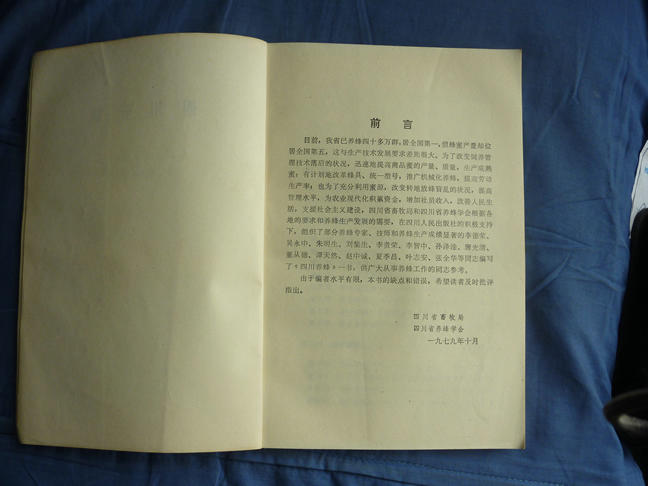 前言
目前，我省已养蜂四十多万群，居全国第一，但蜂蜜产量却位
居全国第五，这与生产技术发展要求差距很大。为了改变饲养管
理技术落后的状况，迅速地提高商品蜜的产量、质量，生产成熟
蜜；有计划地改革蜂具、统一型号，推广机械化养蜂，提高劳动
生产率；也为了充分利用蜜源，改变转地放蜂盲乱的状况，提高
管理水平，为农业现代化积赢资金，增加社员收入，改善人民生
活，支援社会主义建设，四川省畜牧局和四川省养蜂学会根据各
地的要求和养蜂生产发展的需要，在四川人民出版社的积极支持
下，组织了部分养蜂专家、技师和养蜂生产成绩显著的李德荣、
吴永中、朱明生、刘集生、李贵荣、李智中、孙泽淦、唐光清、
董从德、谭天然、赵中诚、夏季昌、叶志安、张全华等同志编写
了《四川养蜂》一书，供广大从事养蜂工作的同志参考。
由于编者水平有限，本书的缺点和错误，希望读者及时批评
指出。
四川省畜牧局
四川省养蜂学会
一九七九年十月